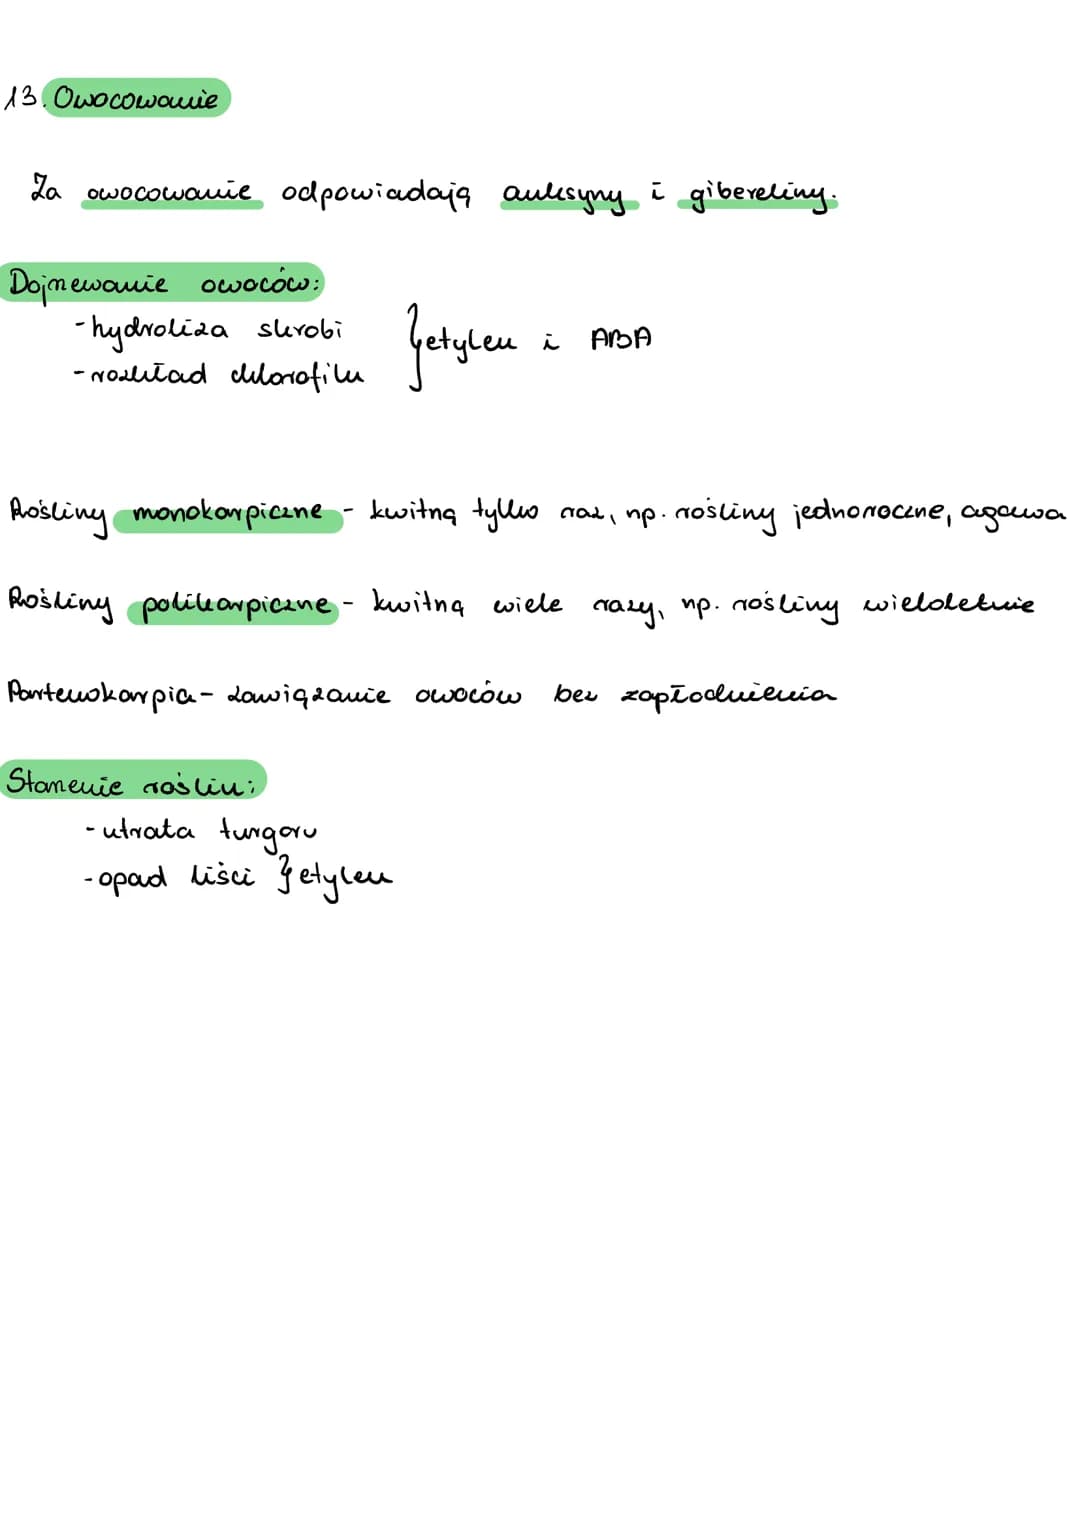 13. Owocowanie
Za owocowanie odpowiadają auksyny i gibereliny.
Dojrzewanie owoców:
- hydroliza skrobi
} etylen i ABA
- rozkład chlorofilu
Rośliny monokarpiczne - kwitną tylko raz, np. rośliny jednoroczne, agawa
Rośliny polikarpiczne - kwitną wiele razy, np. rośliny wieloletnie
Partenokarpia - zawiązanie owoców bez zapłodnienia
Starzenie roślin:
- utrata turgoru
- opad liści } etylen